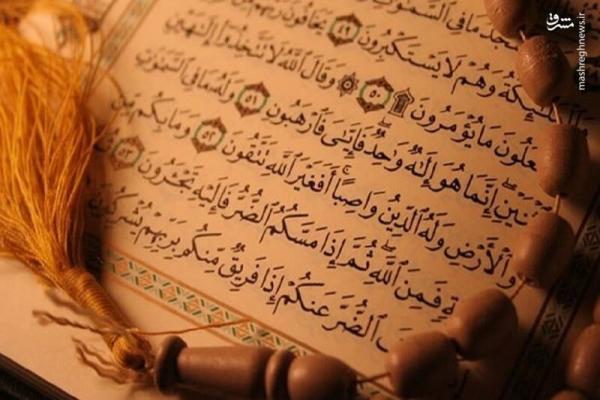 مَا فِى ٱلسَّمَٰوَٰ
وَهُمْ لَا يَسْتَكْبِرُونَ ٤٩ يَخَافُونَ رَبَّهُم
عَلُونَ مَا يُؤْمَرُونَ ۩ ٥٠ ۞ وَقَالَ ٱللَّهُ لَا تَتَّخِذُوٓا۟ إِلَٰهَيْنِ
نَيْنِ إِنَّمَا هُوَ إِلَٰهٌ وَٰحِدٌ فَإِيَّٰىَ فَٱرْهَبُونِ ٥١ وَلَهُۥ مَا فِى ٱلسَّمَٰوَٰتِ
وَٱلْأَرْضِ وَلَهُ ٱلدِّينُ وَاصِبًا أَفَغَيْرَ ٱللَّهِ تَتَّقُونَ ٥٢ وَمَا بِكُم مِّن
ةٍ فَمِنَ ٱللَّهِ ثُمَّ إِذَا مَسَّكُمُ ٱلضُّرُّ فَإِلَيْهِ تَجْـَٔرُونَ ٥٣
ٱلضُّرَّ عَنكُمْ إِذَا فَرِيقٌ مِّنكُم بِرَبِّهِمْ يُشْرِكُونَ
مشرق
mashreghnews.ir